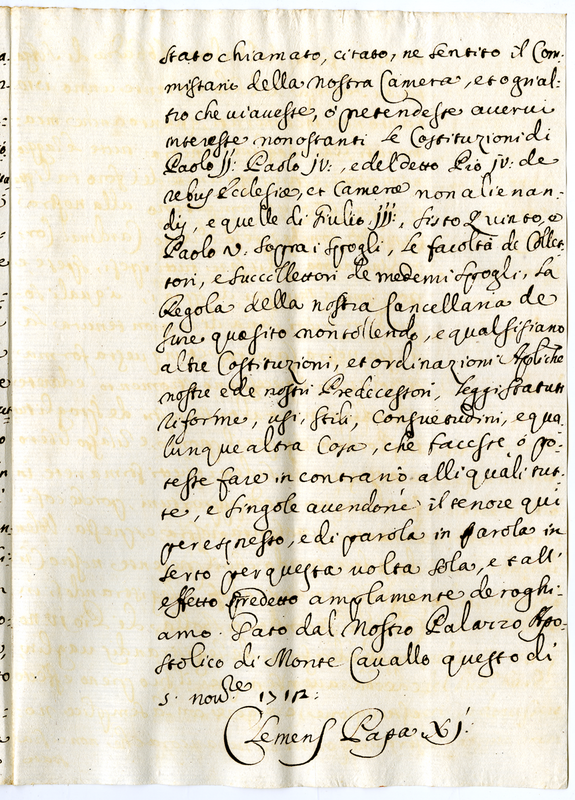 stato chiamato, citato, ne sentito il Com-
missario della nostra Camera, et ogn'al-
tro che vi avesse, ò pretendesse avervi
interesse non ostanti le Costituzioni di
Paolo IJ: Paolo iv:, e del detto Pio iv: de
rebus Ecclesiæ, et Cameræ non alienan-
dis, e quelle di Giulio IIJ:, Sisto Quinto, e
Paolo V. sopra i spogli, le facoltà de Collet-
tori, e succollettori de medemi spogli, la
Regola della nostra Cancellaria de
iure quæsito non tollendo, e qualsisiano
altre Costituzioni, et ordinazioni Appliche
nostre e de nostri Predecessori, leggi statuti
riforme, usi, stili, consuetudini, e qua-
lunque altra Cosa, che facesse ò po-
tesse fare in contrario alli quali tut-
te, e singole avendone il tenore qui
per espresso, e di parola in parola in
serto per questa volta sola, e a tall'
effetto predetto amplamente deroghi-
amo. Dato dal Nostro Palazzo Apo-
stolico di Monte Cavallo questo di
5. nov.re 1712:
Clemens Papa XI.